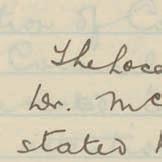 The Loca
Dr. Mc
stated